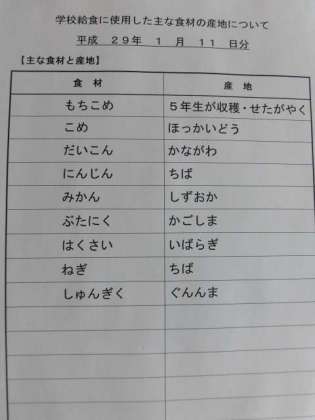 学校給食に使用した主な食材の産地について
平成 29年 1 月 11 日分
【主な食材と産地】
食 材 産 地
もちこめ 5年生が収穫・せたがやく
こめ ほっかいどう
だいこん かながわ
にんじん ちば
みかん しずおか
ぶたにく かごしま
はくさい いばらぎ
ねぎ ちば
しゅんぎく ぐんんま